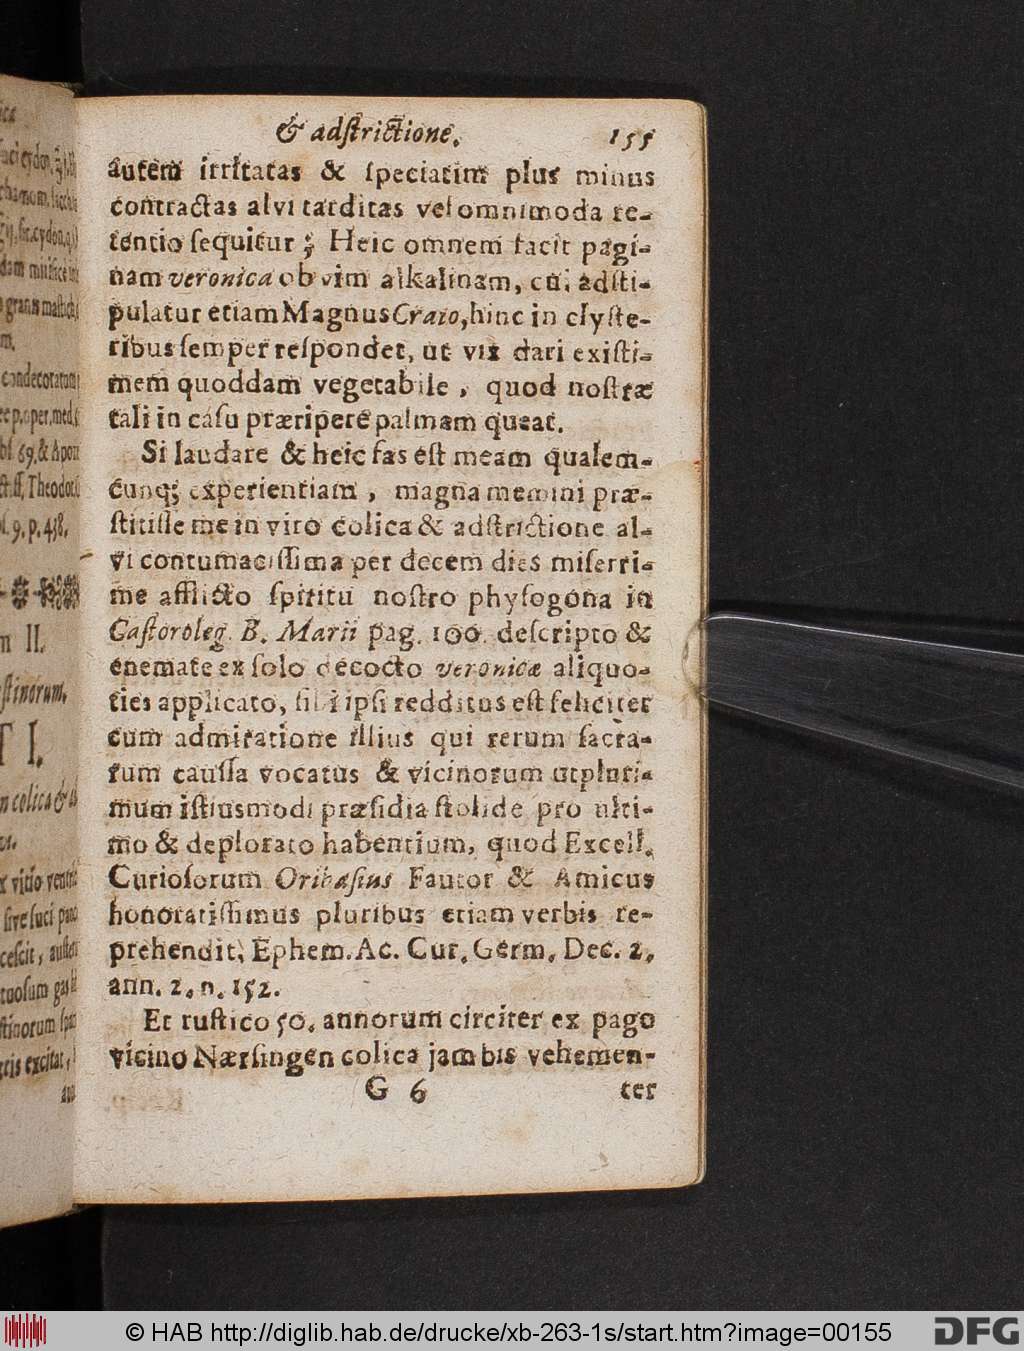 & adſtrictione. 155
autem irritatas & ſpeciatim plus minus
contractas alvi tarditas vel omnimoda re-
tentio ſequitur; Heic omnem facit pagi-
nam veronica ob vim alkalinam, cui adſti-
pulatur etiam Magnus Crato, hinc in clyſte-
ribus ſemper reſpondet, ut vix dari exiſti-
mem quoddam vegetabile, quod noſtræ
tali in caſu præripere palmam queat.
Si laudare & heic fas eſt meam qualem-
cunq; experientiam, magna memini præ-
ſtitiſſe me in viro colica & adſtrictione al-
vi contumaciſſima per decem dies miſerri-
me afflicto ſpiritu noſtro phyſogona in
Caſtorolog. B. Marii pag. 100. deſcripto &
enemate ex ſolo decocto veronicæ aliquo-
ties applicato, ſibi ipſi redditus eſt feliciter
cum admiratione illius qui rerum ſacra-
rum cauſſa vocatus & vicinorum utpluri-
mum iſtiusmodi præſidia ſtolide pro ulti-
mo & deplorato habentium, quod Excell.
Curioſorum Oribaſius Fautor & Amicus
honoratiſſimus pluribus etiam verbis re-
prehendit, Ephem. Ac. Cur. Germ. Dec. 2.
ann. 2. n. 152.
Et ruſtico 50. annorum circiter ex pago
vicino Nærſingen colica jam bis vehemen-
G 6 ter
© HAB http://diglib.hab.de/drucke/xb-263-1s/start.htm?image=00155
DFG